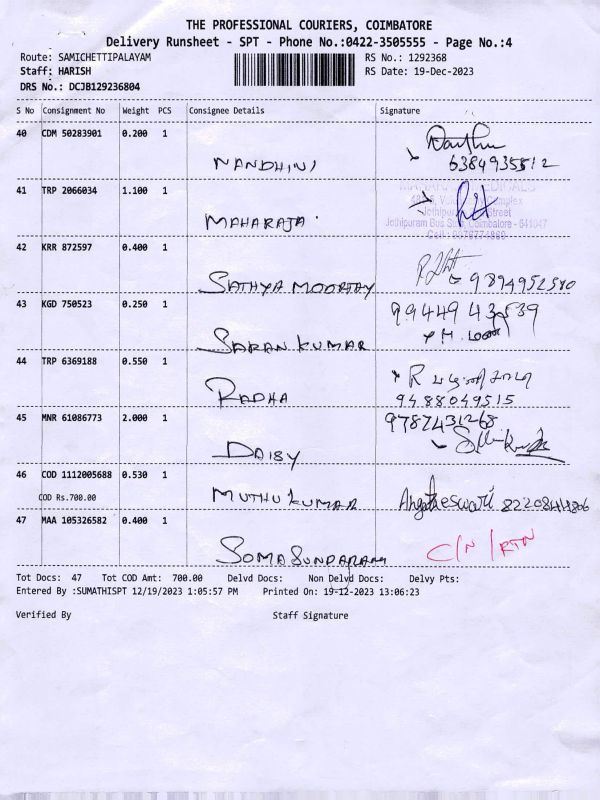 THE PROFESSIONAL COURIERS, COIMBATORE
Delivery Runsheet - SPT - Phone No.:0422-3505555 - Page No.:4
Route: SAMICHETTIPALAYAM RS No.: 1292368
Staff: HARISH RS Date: 19-Dec-2023
DRS No.: DCJB129236804
S No Consignment No Weight PCS Consignee Details Signature
40 CDM 50283901 0.200 1
NANDHINI 6384935512
41 TRP 2066034 1.100 1
MAHARAJA
Jothipuram Bus Coimbatore - 641047
42 KRR 872597 0.400 1
SATHYA MOORTHY 9894952580
43 KGD 750523 0.250 1
SARAN KUMAR 99449 43539
44 TRP 6369188 0.550 1
RADHA 9488049515
45 MNR 61086773 2.000 1 9787431268
DAISY
46 COD 1112005688 0.530 1
COD Rs.700.00 MUTHU KUMAR Angatheswari
47 MAA 105326582 0.400 1
SOMA SUNDARAM C/N / RTN
Tot Docs: 47 Tot COD Amt: 700.00 Delvd Docs: Non Delvd Docs: Delvy Pts:
Entered By :SUMATHISPT 12/19/2023 1:05:57 PM Printed On: 19-12-2023 13:06:23
Verified By Staff Signature